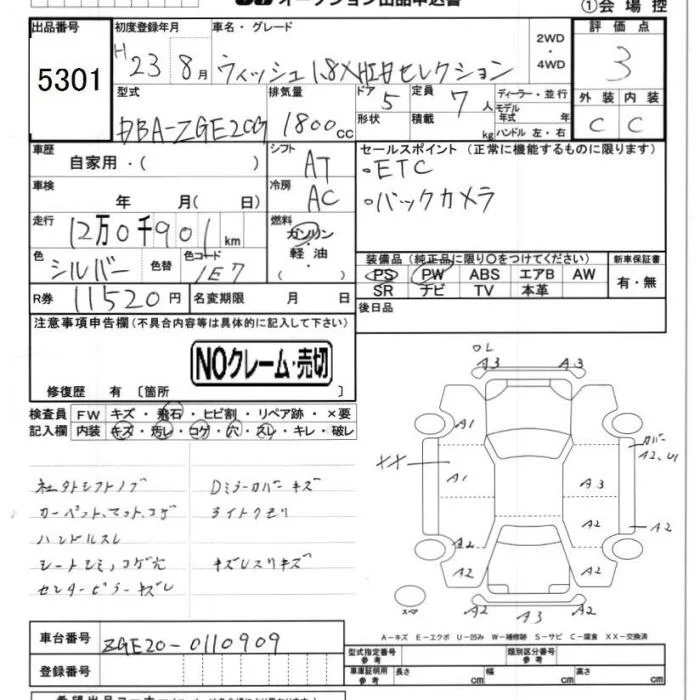 オークション出品申込書
①会場控
出品番号 初度登録年月 車名・グレード 2WD・4WD 評価点
5301 H23 8月 ウィッシュ1.8X HIDセレクション 3
型式 排気量 ドア 5 定員 7人 ディーラー・並行 外装 内装
DBA-ZGE20G 1800cc 形状 積載 kg モデル年式 年 ハンドル 左・右 C C
車歴 自家用・( ) シフト AT セールスポイント (正常に機能するものに限ります)
・ETC
車検 年 月( 日) 冷房 AC ・バックカメラ
走行 12万0千901km 燃料 ガソリン・軽油・( )
色 シルバー 色替 色コード 1E7
装備品 (純正品に限り○をつけてください) 新車保証書
PS PW ABS エアB AW 有・無
SR ナビ TV 本革
R券 11520円 名変期限 月 日 後日品
注意事項申告欄(不具合内容等は具体的に記入して下さい)
NOクレーム・売切
修復歴 有 [箇所 ]
検査員記入欄 FW キズ・飛石・ヒビ割・リペア跡・×要
内装 キズ・汚レ・コゲ・穴・スレ・キレ・破レ
社外シフトノブ Dミラーカバーキズ
カーペット、マット、コゲ ライトクモリ
ハンドルスレ
シートシミ、コゲ穴 キズレスリキズ
センターピラーキズレ
A3 A3
A1 カバー
A2、U1
XX A1 A3
A2 A2 A2
A2 A2
A2 A3 A2
スペア
A-キズ E-エクボ U-凹み W-補修跡 S-サビ C-腐食 XX-交換済
車台番号 ZGE20-0110909
型式指定番号 参考 類別区分番号 参考
登録番号 車庫証明用 参考 長さ cm 幅 cm 高さ cm